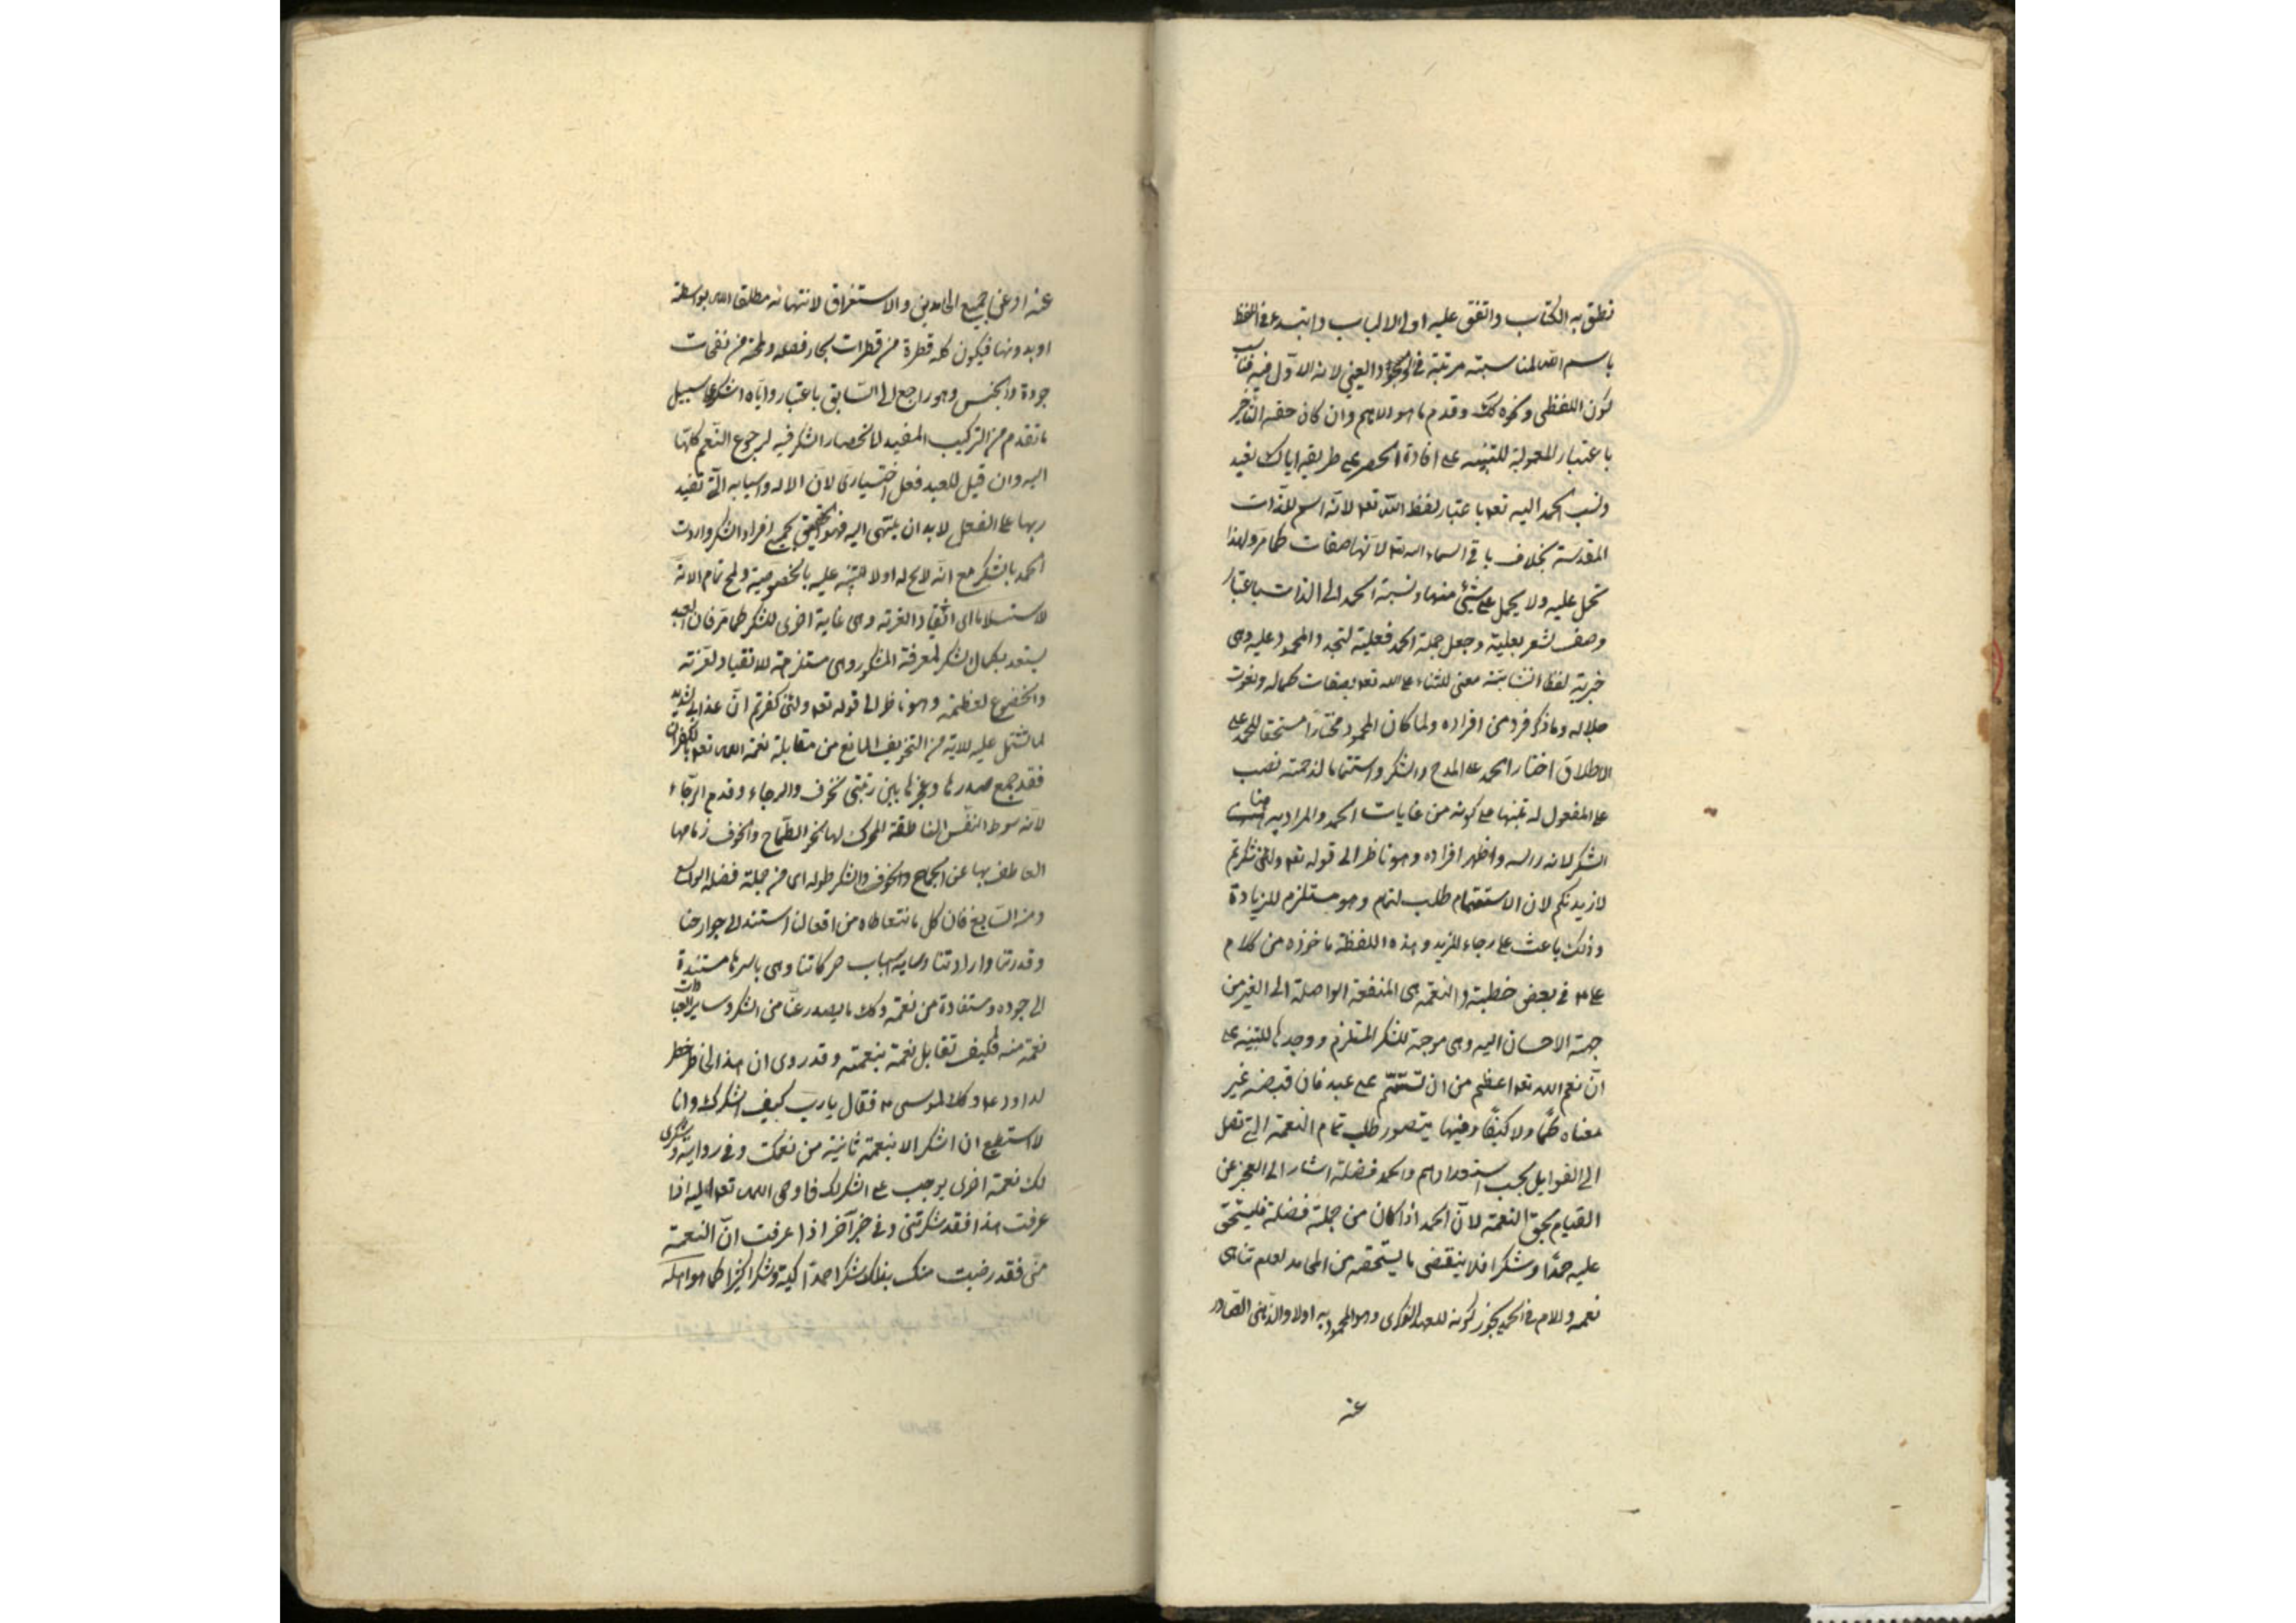 نطق به الكتاب واتفق عليه اولى الالباب وابتدء فى اللفظ
باسم الله لمناسبته مرتبته فى الوجود العينى لانه الاول فيه فناسب
كون اللفظى ونحوه كك وقدم ما هو الاهم وان كان حقه التأخير
باعتبار المعمولية للتنبيه على افادة الحصر على طريقة اياك نعبد
ونسب الحمد اليه تعه باعتبار لفظ الله تعه لانه اسم للذات
المقدسة بخلاف باقى اسماء الله تعه لانها صفات كما مر ولهذا
تحمل عليه ولا يحمل على شيئ منها ونسبة الحمد الى الذات باعتبار
وصف تشعر بعلية وجعل جملة الحمد فعلية لتجدد المحمود عليه وهى
خبرية لفظا انشائية معنى للثناء على الله تعه بصفات كماله ونعوت
جلاله وما ذكر فرد من افراده ولما كان المحمود مختارا مستحقا للحمد على
الاطلاق اختار الحمد على المدح والشكر واستتماما لنعمته نصب
على المفعول له تنبيها على كونه من غايات الحمد والمراد به هنا
الشكر لانه راسه واظهر افراده وهو ناظر الى قوله تعه ولئن شكرتم
لازيدنكم لان الاستتمام طلب لتمام وهو مستلزم للزيادة
وذلك باعث على رجاء المزيد وهذه اللفظة ماخوذه من كلام
على ع فى بعض خطبته والنعمة هى المنفعة الواصلة الى الغير من
جهة الاحسان اليه وهى موجبة للشكر المستلزم ووحدها للتنبيه على
ان نعم الله تعه اعظم من ان تستتم على عبد فان قبضه غير
متناه كما ولا كيفا وفيها يتصور طلب تمام النعمة التى تصل
الى القوابل بحسب استعدادهم والحمد فضله اشار الى العجز عن
القيام بحق النعمة لان الحمد اذا كان من جملة فضله فيستحق
عليه حمدا وشكرا فلا ينقضى ما يستحقه من المحامد لعدم تناهى
نعمه واللام فى الحمد يجوز كونه للعهد الذكرى وهو المحمود به اولا والذهنى الصادر
عنه
عنه او عن جميع الحامدين والاستغراق لانتهائه مطلقا اليه بواسطة
او بدونها فيكون كله قطرة من قطرات بحار فضله ولمحة من نفحات
جوده والجنس وهو راجع الى السابق باعتبار واياه اشكر على سبيل
ما تقدم من التركيب المفيد لانحصار الشكر فيه لرجوع النعم كلها
اليه وان قيل للعبد فعل اختيارى لان الاله واسبابه التى
على الفعل لا بد ان ينتهى اليه فهو الحقيق بجميع افراد الشكر واردف
الحمد بالشكر مع انه لامح له اولا للتنبيه عليه بالخصوصية ولمح تمام الاية
لاستسلاما اى انقيادا لعزته وهى غاية اخرى للشكر كما مر فان العبد
يستعد بكمال الشكر لمعرفة المشكور وهى مستلزمة للانقياد لعزته
والخضوع لعظمته وهو ناظر الى قوله تعه ولئن كفرتم ان عذابى لشديد
لما تشتمل عليه الاية من التخويف المانع من مقابلة نعمة الله تعه بالكفران
فقد جمع صدرها وعجزها بين رتبتى الخوف والرجاء وقدم الرجاء
لانه سوط النفس الناطقة المحرك لها نحو الطماح والخوف زمامها
العاطف بها عن الجماح والخوف والشكر طوله اى من جملة فضله الواسع
ومنه السابغ فان كل ما نتعاطاه من افعالنا استند الى جوارحنا
وقدرتنا وارادتنا وساير اسباب حركاتنا وهى باسرها مستندة
الى جوده ومستفادة من نعمه وكك ما يصدر عنا من الشكر وساير العبادات
نعمة منه فكيف تقابل نعمة بنعمته وقد روى ان هذا الخاطر خطر
لداود ع وكك لموسى ع فقال يارب كيف اشكرك وانا
لا استطيع ان اشكر الا بنعمة ثانية من نعمك وفى رواية وشكرى
لك نعمة اخرى يوجب على الشكر لك فاوحى الله تعه اليه اذا
عرفت هذا فقد شكرتنى وفى خبر آخر اذا عرفت ان النعمة
منى فقد رضيت منك بذلك شكرا حمدا وشكرا كثيرا كما هو اهله